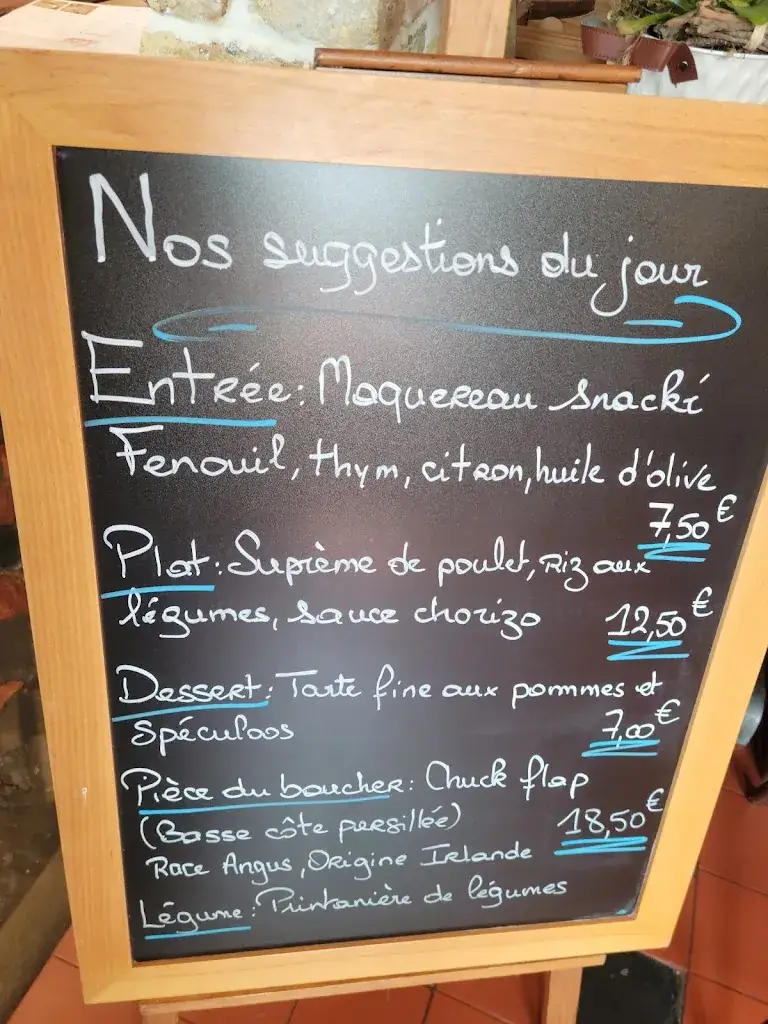 Nos suggestions du jour
Entrée: Maquereau snacké
Fenouil, thym, citron, huile d'olive
7,50€
Plat: Suprème de poulet, Riz aux
légumes, sauce chorizo 12,50€
Dessert: Tarte fine aux pommes et
spéculoos 7,00€
Pièce du boucher: Chuck flap
(Basse côte persillée) 18,50€
Race Angus, Origine Irlande
Légume: Printanière de légumes